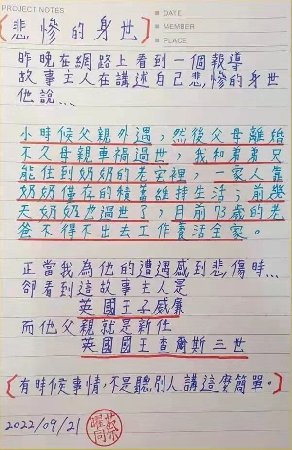 PROJECT NOTES
DATE
MEMBER
PLACE
【悲慘的身世】
昨晚在網路上看到一個報導
故事主人在講述自己悲慘的身世
他說...
小時候父親外遇，然後父母離婚
不久母親車禍過世，我和弟弟只
能住到奶奶的老家裡，一家人靠
奶奶僅存的積蓄維持生活；前幾
天奶奶也過世了，目前73歲的老
爸不得不出去工作養活全家。
正當我為他的遭遇感到悲傷時...
卻看到這故事主人是
英國王子威廉
而他父親就是新任
英國國王查爾斯三世
【有時候事情，不是聽別人講這麼簡單。】
2022/09/21